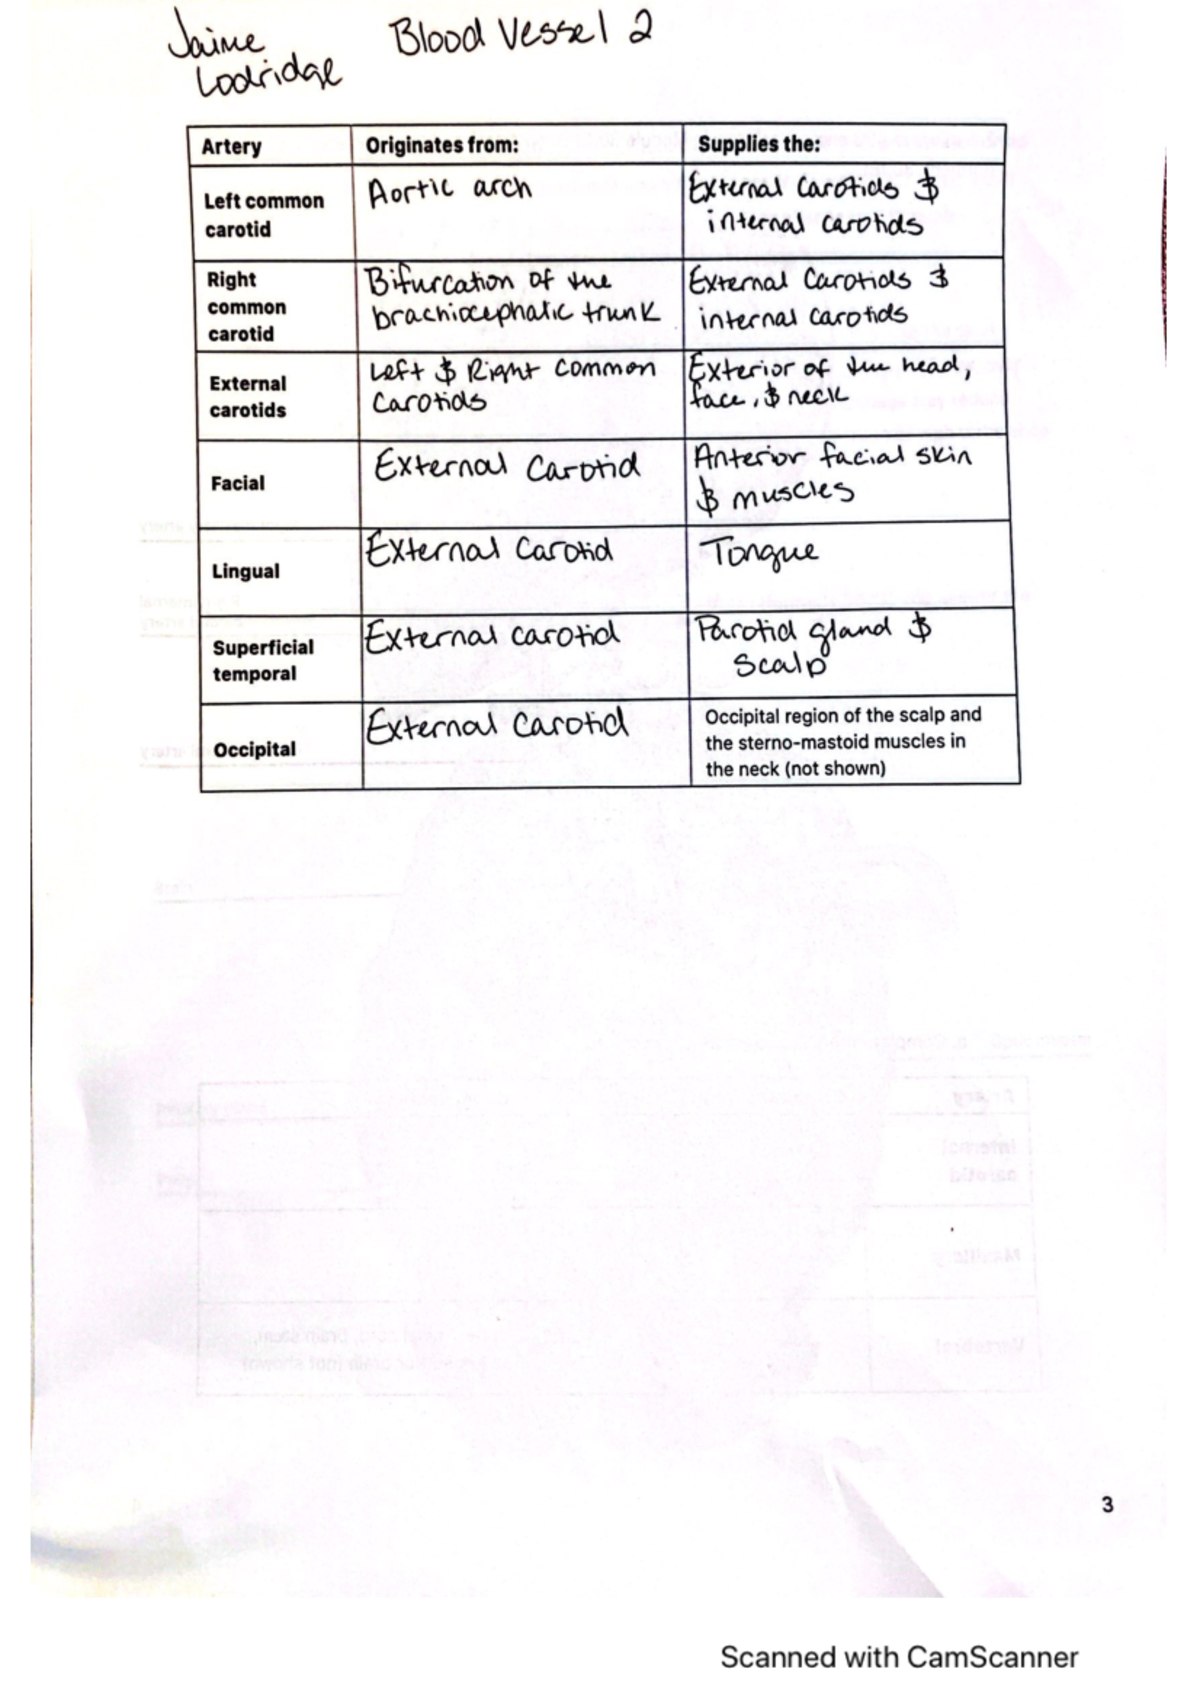 Jaime
Lodridge
Blood Vessel 2
Artery
Originates from:
Supplies the:
Left common
carotid
Aortic arch
External Carotids &
internal carotids
Right
common
carotid
Bifurcation of the
brachiocephalic trunk
External Carotids &
internal carotids
External
carotids
Left & Right Common
Carotids
Exterior of the head,
face, & neck
Facial
External Carotid
Anterior facial skin
& muscles
Lingual
External Carotid
Tongue
Superficial
temporal
External carotid
Parotid gland &
Scalp
Occipital
External Carotid
Occipital region of the scalp and
the sterno-mastoid muscles in
the neck (not shown)
3
Scanned with CamScanner